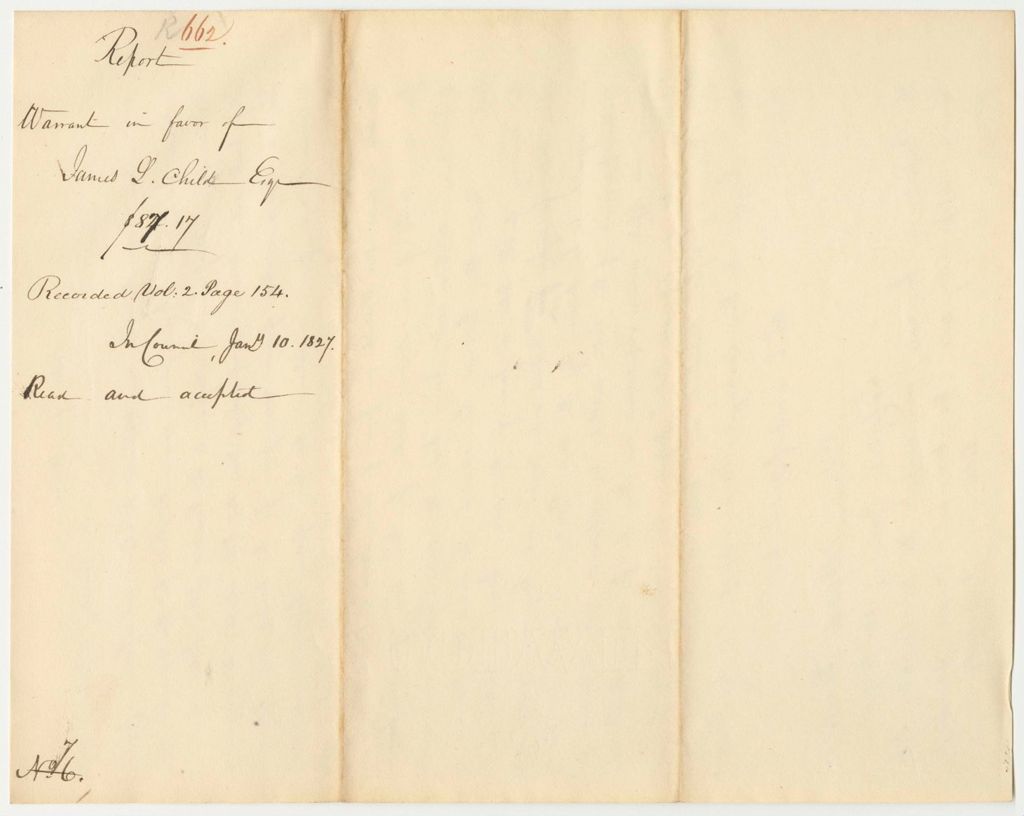 R 662.
Report
Warrant in favor of
James L. Child Esqr
$87.17
Recorded Vol: 2. Page 154.
In Council, Jany 10. 1827.
Read and accepted
No 7